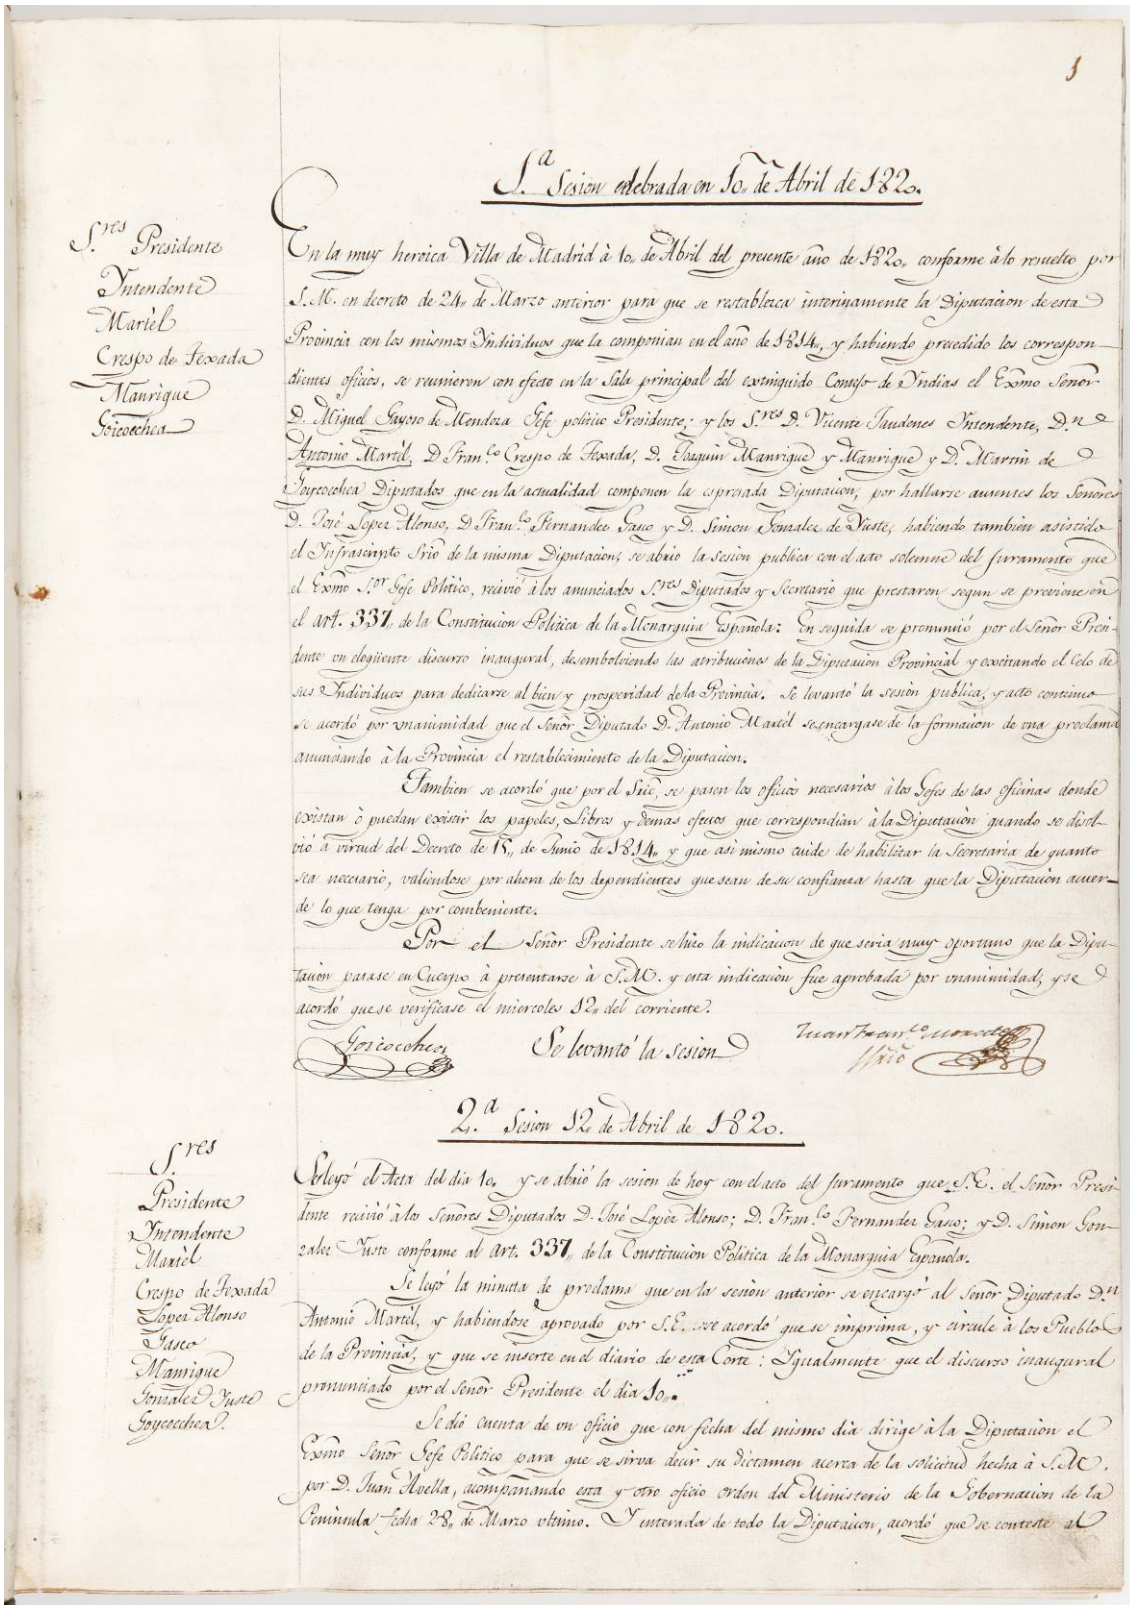 1
1.ª Sesion celebrada en 10,, de Abril de 1820.
S.res Presidente
Yntendente
Martél
Crespo de Texada
Manrique
Goicoechea
En la muy heroica Villa de Madrid à 10,, de Abril del presente año de 1820,, conforme à lo resuelto por
S.M. en decreto de 24,, de Marzo anterior para que se restablezca interinamente la Diputacion de esta
Provincia con los mismos Yndividuos que la componian en el año de 1814,, y habiendo precedido los correspon-
dientes oficios, se reunieron con efecto en la Sala principal del extinguido Consejo de Yndias el Exmo Señor
D. Miguel Gayoso de Mendoza Gefe politico Presidente; y los S.res D. Vicente Jaudenes Yntendente, D.n
Antonio Martél, D Fran.co Crespo de Texada, D. Joaquin Manrique y Manrique y D. Martin de
Goycoechea Diputados que en la actualidad componen la espresada Diputacion, por hallarse ausentes los Señores
D. José Lopez Alonso, D Fran.co Fernandez Gasco y D. Simon Gonzalez de Yuste, habiendo tambien asistido
el Infrascripto Srio de la misma Diputacion, se abrio la sesion publica con el acto solemne del Juramento que
el Exmo S.or Gefe Politico, recivió à los anunciados S.res Diputados y Secretario que prestaron segun se previene en
el art. 337,, de la Constitucion Politica de la Monarquia Española: En seguida se pronunció por el Señor Presi-
dente un eloqüente discurso inaugural, desembolviendo las atribuciones de la Diputacion Provincial y excitando el Celo de
sus Yndividuos para dedicarse al bien y prosperidad de la Provincia. Se levantó la sesion publica, y acto continuo
se acordó por unanimidad que el Señor Diputado D. Antonio Martél se encargase de la formacion de una proclama
anunciando à la Provincia el restablecimiento de la Diputacion.
Tambien se acordó que por el Srio, se pasen los oficios necesarios à los Gefes de las oficinas donde
existan ò puedan existir los papeles, Libros y demas efectos que correspondian à la Diputacion quando se disol-
vió a virtud del Decreto de 15,, de Junio de 1814,, y que asi mismo cuide de habilitar la Secretaria de quanto
sea necesario, valiendose por ahora de los dependientes que sean de su confianza hasta que la Diputacion acuer-
de lo que tenga por combeniente.
Por el Señor Presidente se hizo la indicacion de que seria muy oportuno que la Dipu-
tacion pasase en Cuerpo à presentarse à S.M. y esta indicacion fue aprobada por unanimidad, y se
acordó que se verificase el miercoles 12,, del corriente.
Goicoechea
Se levantó la sesion
Juan Fran.co
Srio
2.ª Sesion 12,, de Abril de 1820.
S.res
Presidente
Yntendente
Martél
Crespo de Texada
Lopez Alonso
Gasco
Manrique
Gonzalez Yuste
Goycoechea.
Se leyó el Acta del dia 10,, y se abrió la sesion de hoy con el acto del Juramento que S.E. el Señor Presi-
dente recivió à los Señores Diputados D. José Lopez Alonso; D. Fran.co Fernandez Gasco; y D. Simon Gon-
zalez Yuste conforme al art. 337,, de la Constitucion Politica de la Monarquia Española.
Se leyó la minuta de proclama que en la sesion anterior se encargó al Señor Diputado D.n
Antonio Martél, y habiendose aprovado por S.E. se acordó que se imprima, y circule à los Pueblos
de la Provincia, y que se inserte en el diario de esta Corte: Ygualmente que el discurso inaugural
pronunciado por el Señor Presidente el dia 10,,
Se dió cuenta de un oficio que con fecha del mismo dia dirige à la Diputacion el
Exmo Señor Gefe Politico para que se sirva decir su dictamen acerca de la solicitud hecha à S.M.
por D. Juan Avella, acompañando esta y otro oficio orden del Ministerio de la Gobernacion de la
Peninsula fecha 28,, de Marzo ultimo. Y enterada de todo la Diputacion, acordó que se conteste al